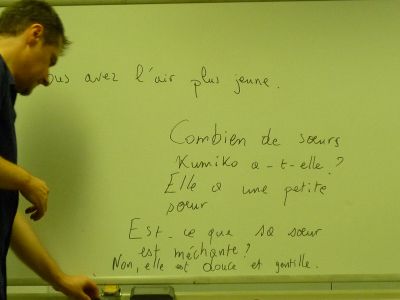 ous avez l'air plus jeune.
Combien de sœurs
Kumiko a-t-elle?
Elle a une petite
sœur
Est-ce que sa sœur
est méchante?
Non, elle est douce et gentille.